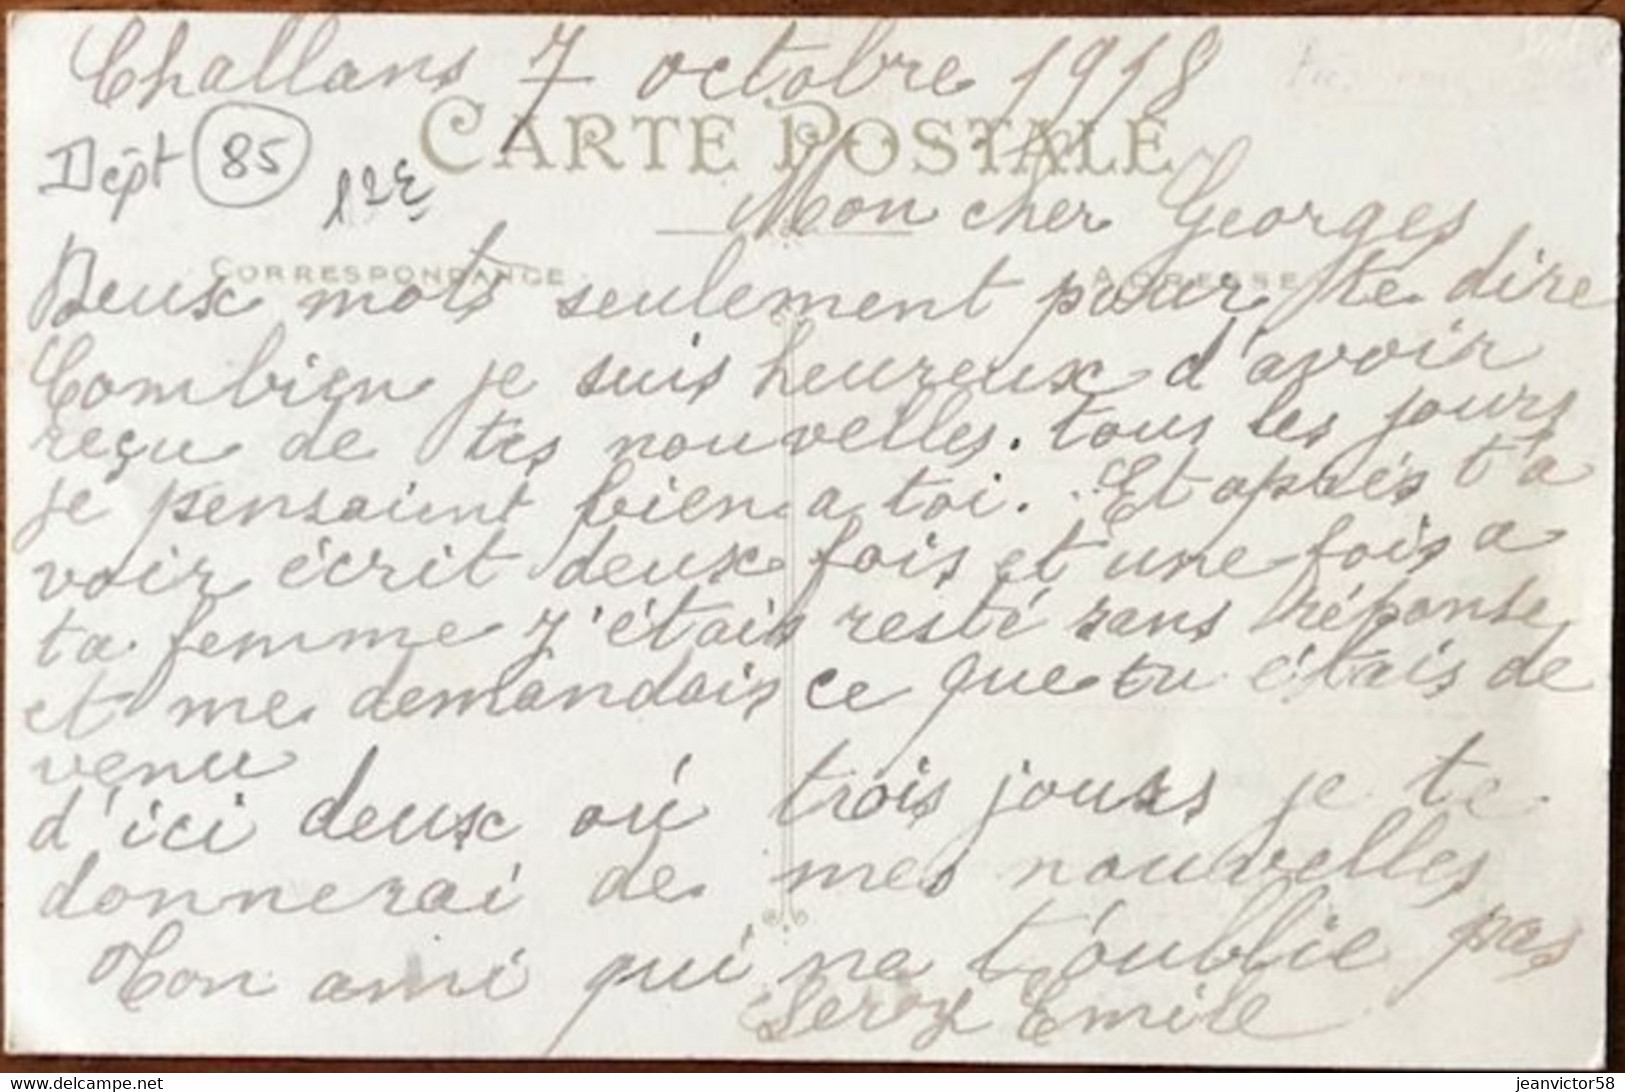 Challans 7 octobre 1918
CARTE POSTALE
Dépt 85 12€
Mon cher Georges
CORRESPONDANCE ADRESSE
Deux mots seulement pour te dire
Combien je suis heureux d'avoir
reçu de tes nouvelles. tous les jours
je pensaint bien a toi. Et après t'a
voir écrit deux fois et une fois a
ta femme j'étais resté sans réponse
et me demandais ce que tu étais de
venu
d'ici deux où trois jours je te
donnerai de mes nouvelles
Ton ami qui ne t'oublie pas
Leroy Emile
jeanvictor58